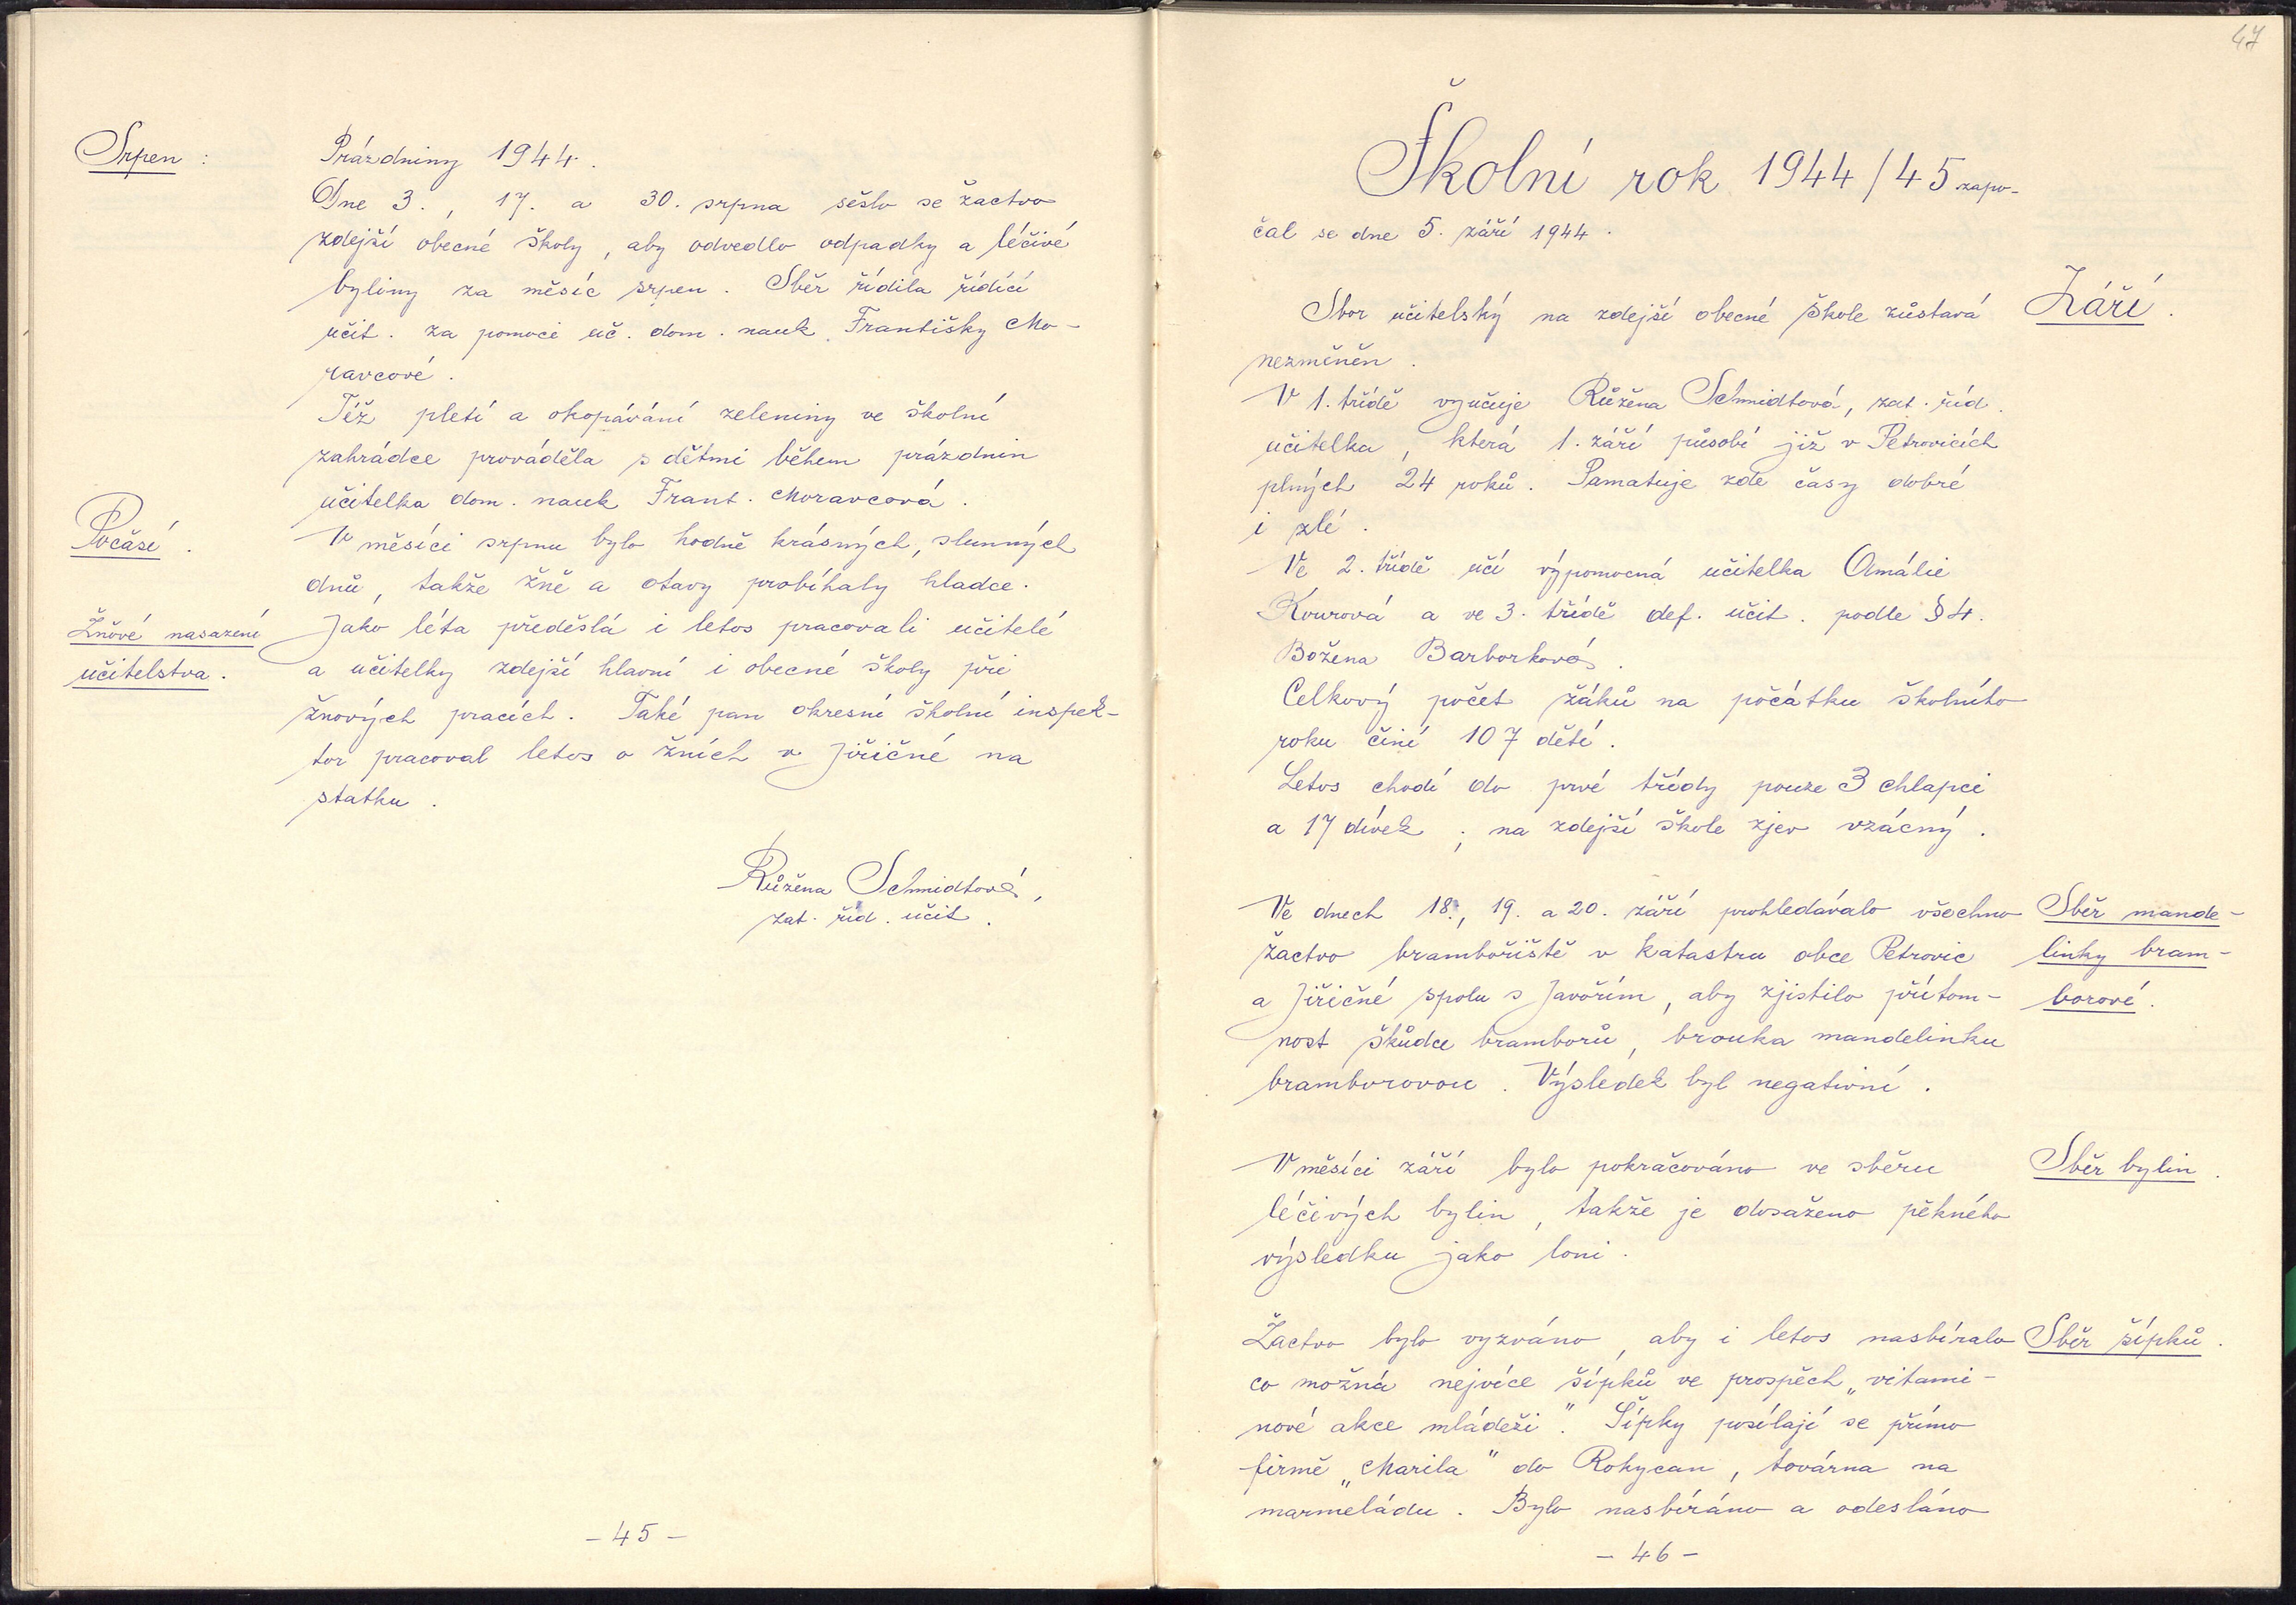 Srpen :
Prázdniny 1944.
Dne 3., 17. a 30. srpna sešlo se žactvo
zdejší obecné školy, aby odvedlo odpadky a léčivé
byliny za měsíc srpen. Sběr řídila řídící
učit. za pomoci uč. dom. nauk. Františky Mo-
ravcové.
Též pletí a okopávání zeleniny ve školní
zahrádce prováděla s dětmi během prázdnin
učitelka dom. nauk Frant. Moravcová.
Počasí.
V měsíci srpnu bylo hodně krásných, slunných
dnů, takže žně a otavy probíhaly hladce.
Žňové nasazení
učitelstva.
Jako léta předešlá i letos pracovali učitelé
a učitelky zdejší hlavní i obecné školy při
žnových pracích. Také pan okresní školní inspek-
tor pracoval letos o žních v Jiřičné na
statku.
Růžena Schmidtová,
zat. říd. učit.
- 45 -
47
Školní rok 1944/45 zapo-
čal se dne 5. září 1944.
Září.
Sbor učitelský na zdejší obecné škole zůstává
nezměněn.
V 1. třídě vyučuje Růžena Schmidtová, zat. říd.
učitelka, která 1. září působí již v Petrovicích
plných 24 roků. Pamatuje zde časy dobré
i zlé.
Ve 2. třídě učí výpomocná učitelka Amálie
Kourová a ve 3. třídě def. učit. podle § 4.
Božena Barborková.
Celkový počet žáků na počátku školního
roku činí 107 dětí.
Letos chodí do prvé třídy pouze 3 chlapci
a 17 dívek; na zdejší škole zjev vzácný.
Sběr mande-
linky bram-
borové.
Ve dnech 18., 19. a 20. září prohledávalo všechno
žactvo brambořiště v katastru obce Petrovic
a Jiřičné spolu s Javořím, aby zjistilo přítom-
nost škůdce bramborů, brouka mandelinku
bramborovou. Výsledek byl negativní.
Sběr bylin.
V měsíci září bylo pokračováno ve sběru
léčivých bylin, takže je dosaženo pěkného
výsledku jako loni.
Sběr šípků.
Žactvo bylo vyzváno, aby i letos nasbíralo
co možná nejvíce šípků ve prospěch „vitami-
nové akce mládeži". Šípky posílají se přímo
firmě „Marila" do Rokycan, továrna na
marmeládu. Bylo nasbíráno a odesláno
- 46 -